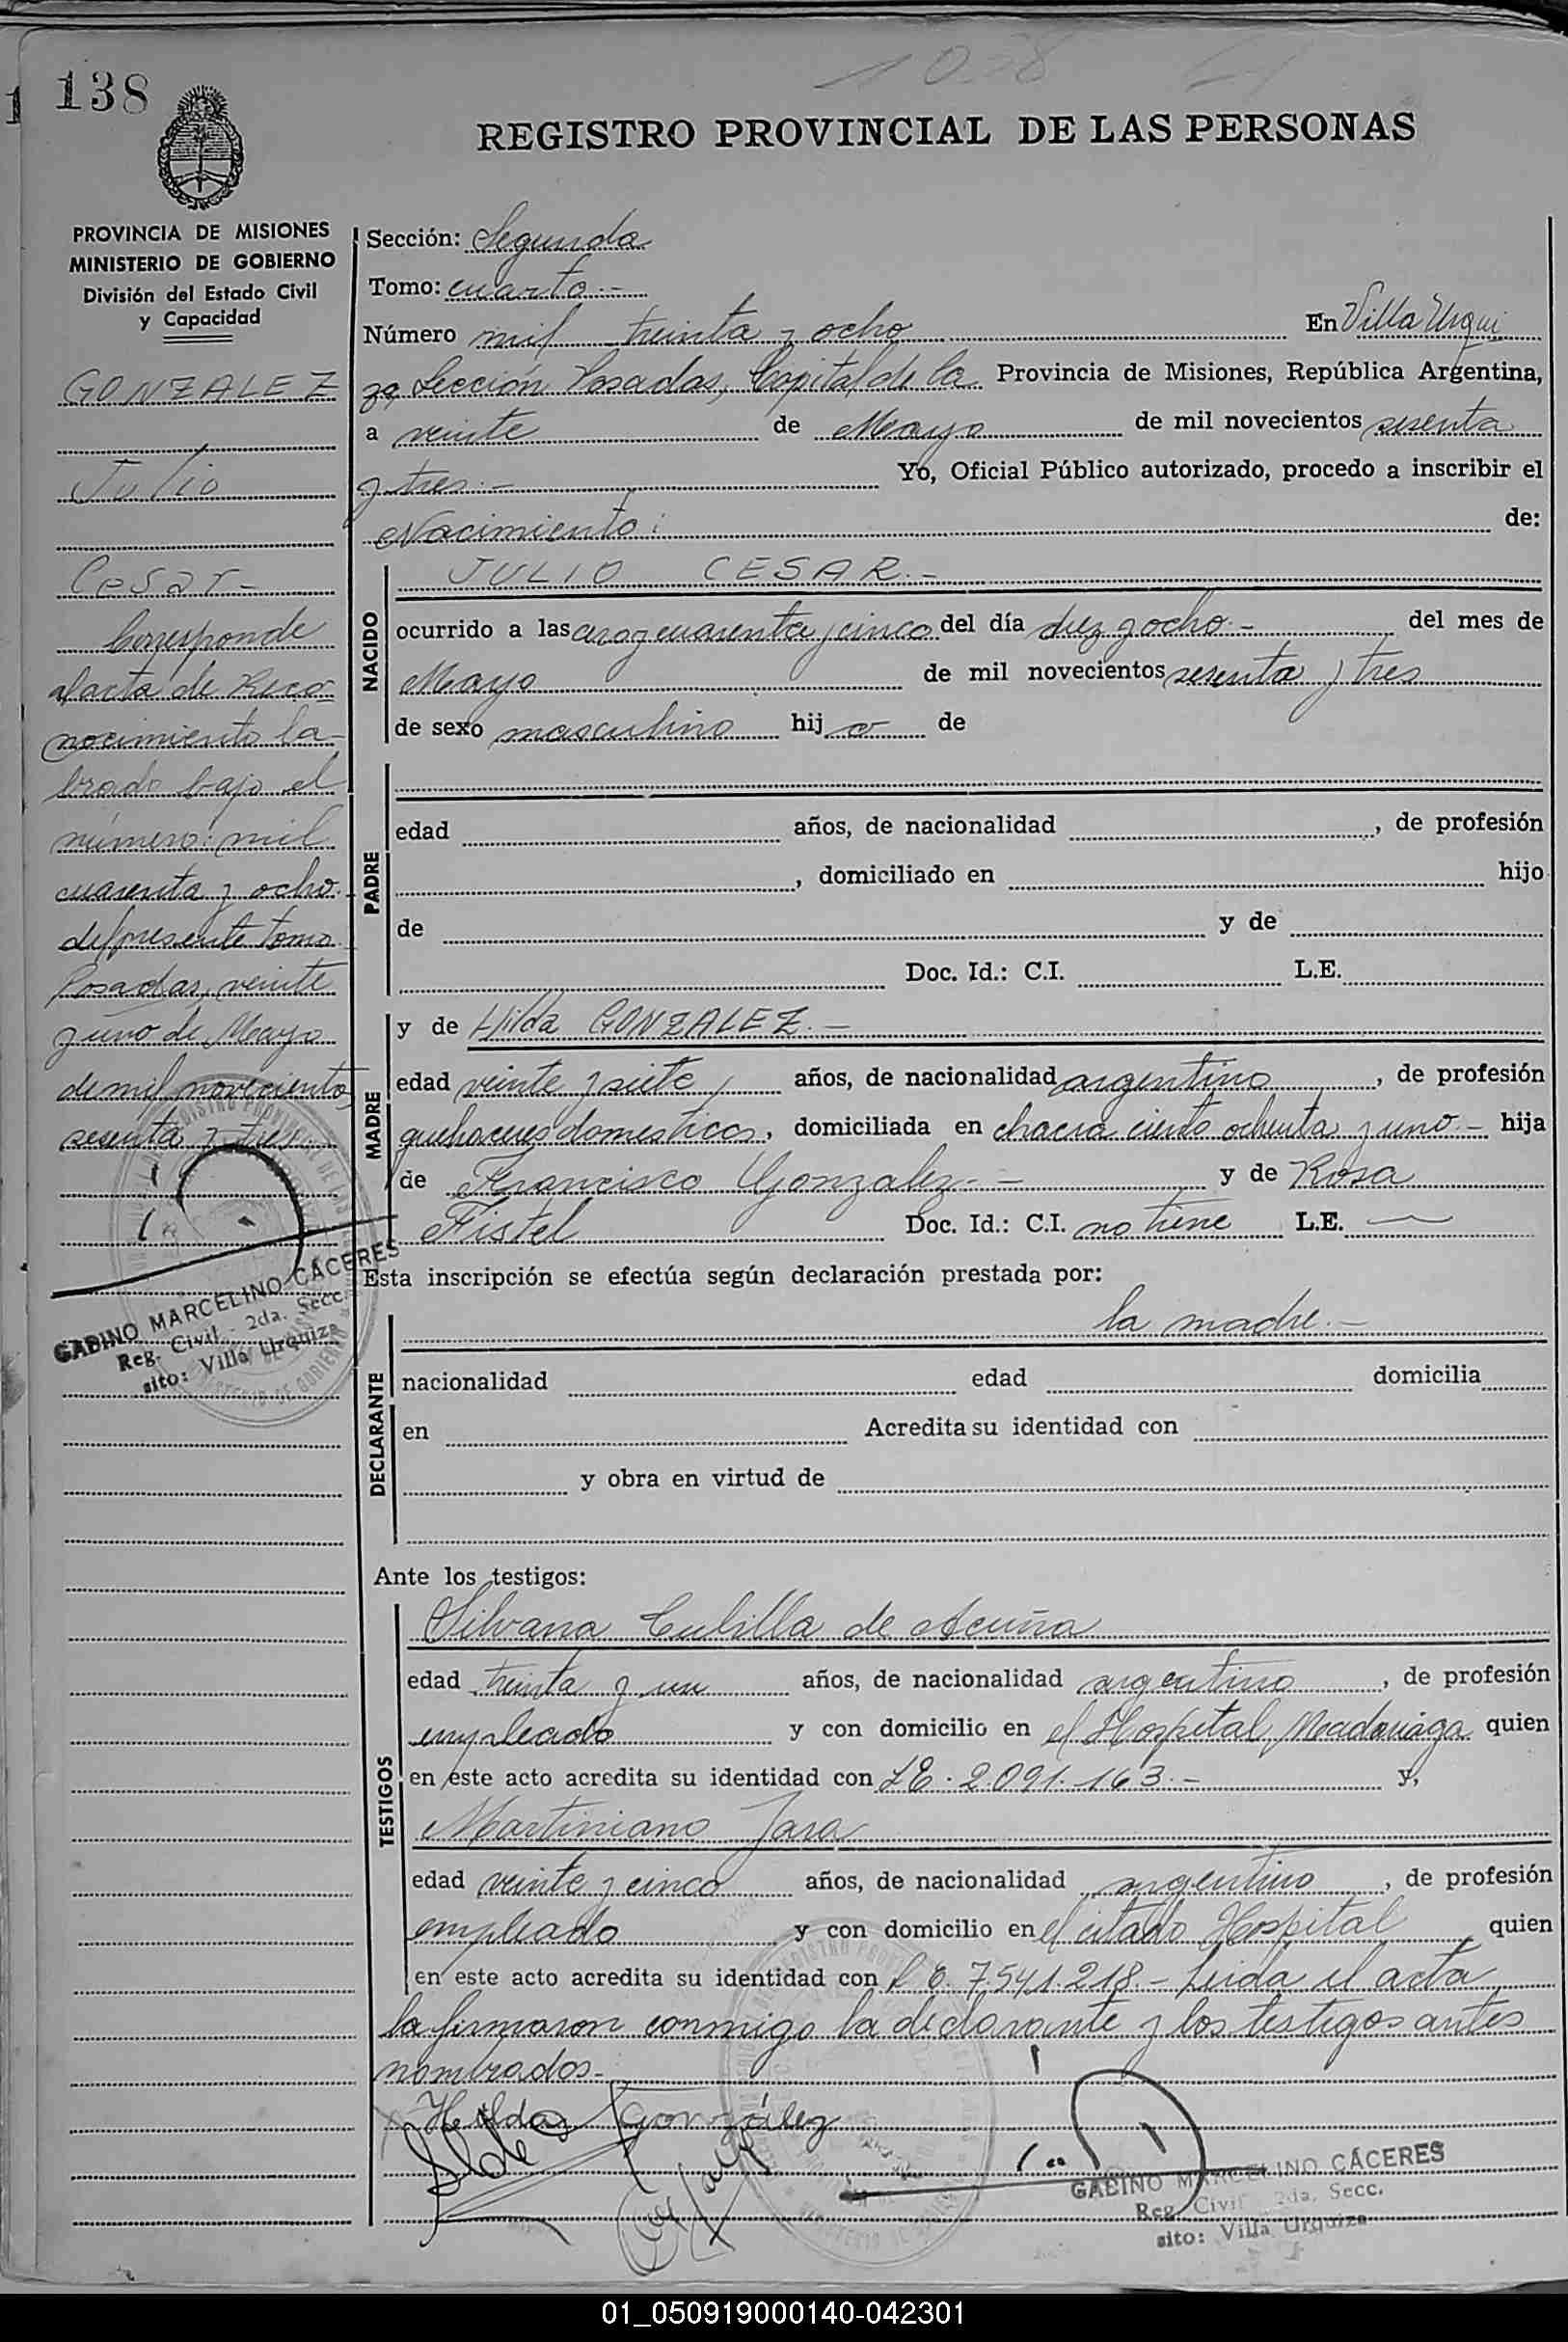 138
1038
REGISTRO PROVINCIAL DE LAS PERSONAS
PROVINCIA DE MISIONES
MINISTERIO DE GOBIERNO
División del Estado Civil
y Capacidad
GONZALEZ
Julio
Cesar-
Corresponde
al acta de Reco-
nocimiento la-
brado bajo el
número: mil
cuarenta y ocho.
del presente tomo.
Posadas, veinte
y uno de Mayo
de mil novecientos
sesenta y tres.-
GABINO MARCELINO CÁCERES
Reg. Civil - 2da. Secc.
sito: Villa Urquiza
Sección: Segunda
Tomo: cuarto.-
Número mil treinta y ocho En Villa Urqui
za, Sección Posadas, Capital de la Provincia de Misiones, República Argentina,
a veinte de Mayo de mil novecientos sesenta
y tres.- Yo, Oficial Público autorizado, procedo a inscribir el
Nacimiento: de:
NACIDO
JULIO CESAR.-
ocurrido a las cuarenta y cinco del día diez y ocho.- del mes de
Mayo de mil novecientos sesenta y tres
de sexo masculino hij o de
PADRE
edad años, de nacionalidad , de profesión
, domiciliado en hijo
de y de
Doc. Id.: C.I. L.E.
MADRE
y de Hilda GONZALEZ.-
edad veinte y siete, años, de nacionalidad argentina, de profesión
quehaceres domesticos, domiciliada en chacra ciento ochenta y uno.- hija
de Francisco Gonzalez.- y de Rosa
Fistel Doc. Id.: C.I. no tiene L.E. —
Esta inscripción se efectúa según declaración prestada por:
DECLARANTE
la madre.-
nacionalidad edad domicilia
en Acredita su identidad con
y obra en virtud de
Ante los testigos:
TESTIGOS
Silvana Cubilla de Acuña
edad treinta y un años, de nacionalidad argentino, de profesión
empleado y con domicilio en el Hospital Madariaga quien
en este acto acredita su identidad con LE. 2.091.163.- y,
Martiniano Jara
edad veinte y cinco años, de nacionalidad argentino, de profesión
empleado y con domicilio en el citado Hospital quien
en este acto acredita su identidad con L E. 7.541.218.- Leida el acta
la firmaron conmigo la declarante y los testigos antes
nombrados.-
Hilda González
GABINO MARCELINO CÁCERES
Reg. Civil 2da. Secc.
sito: Villa Urquiza
01_050919000140-042301